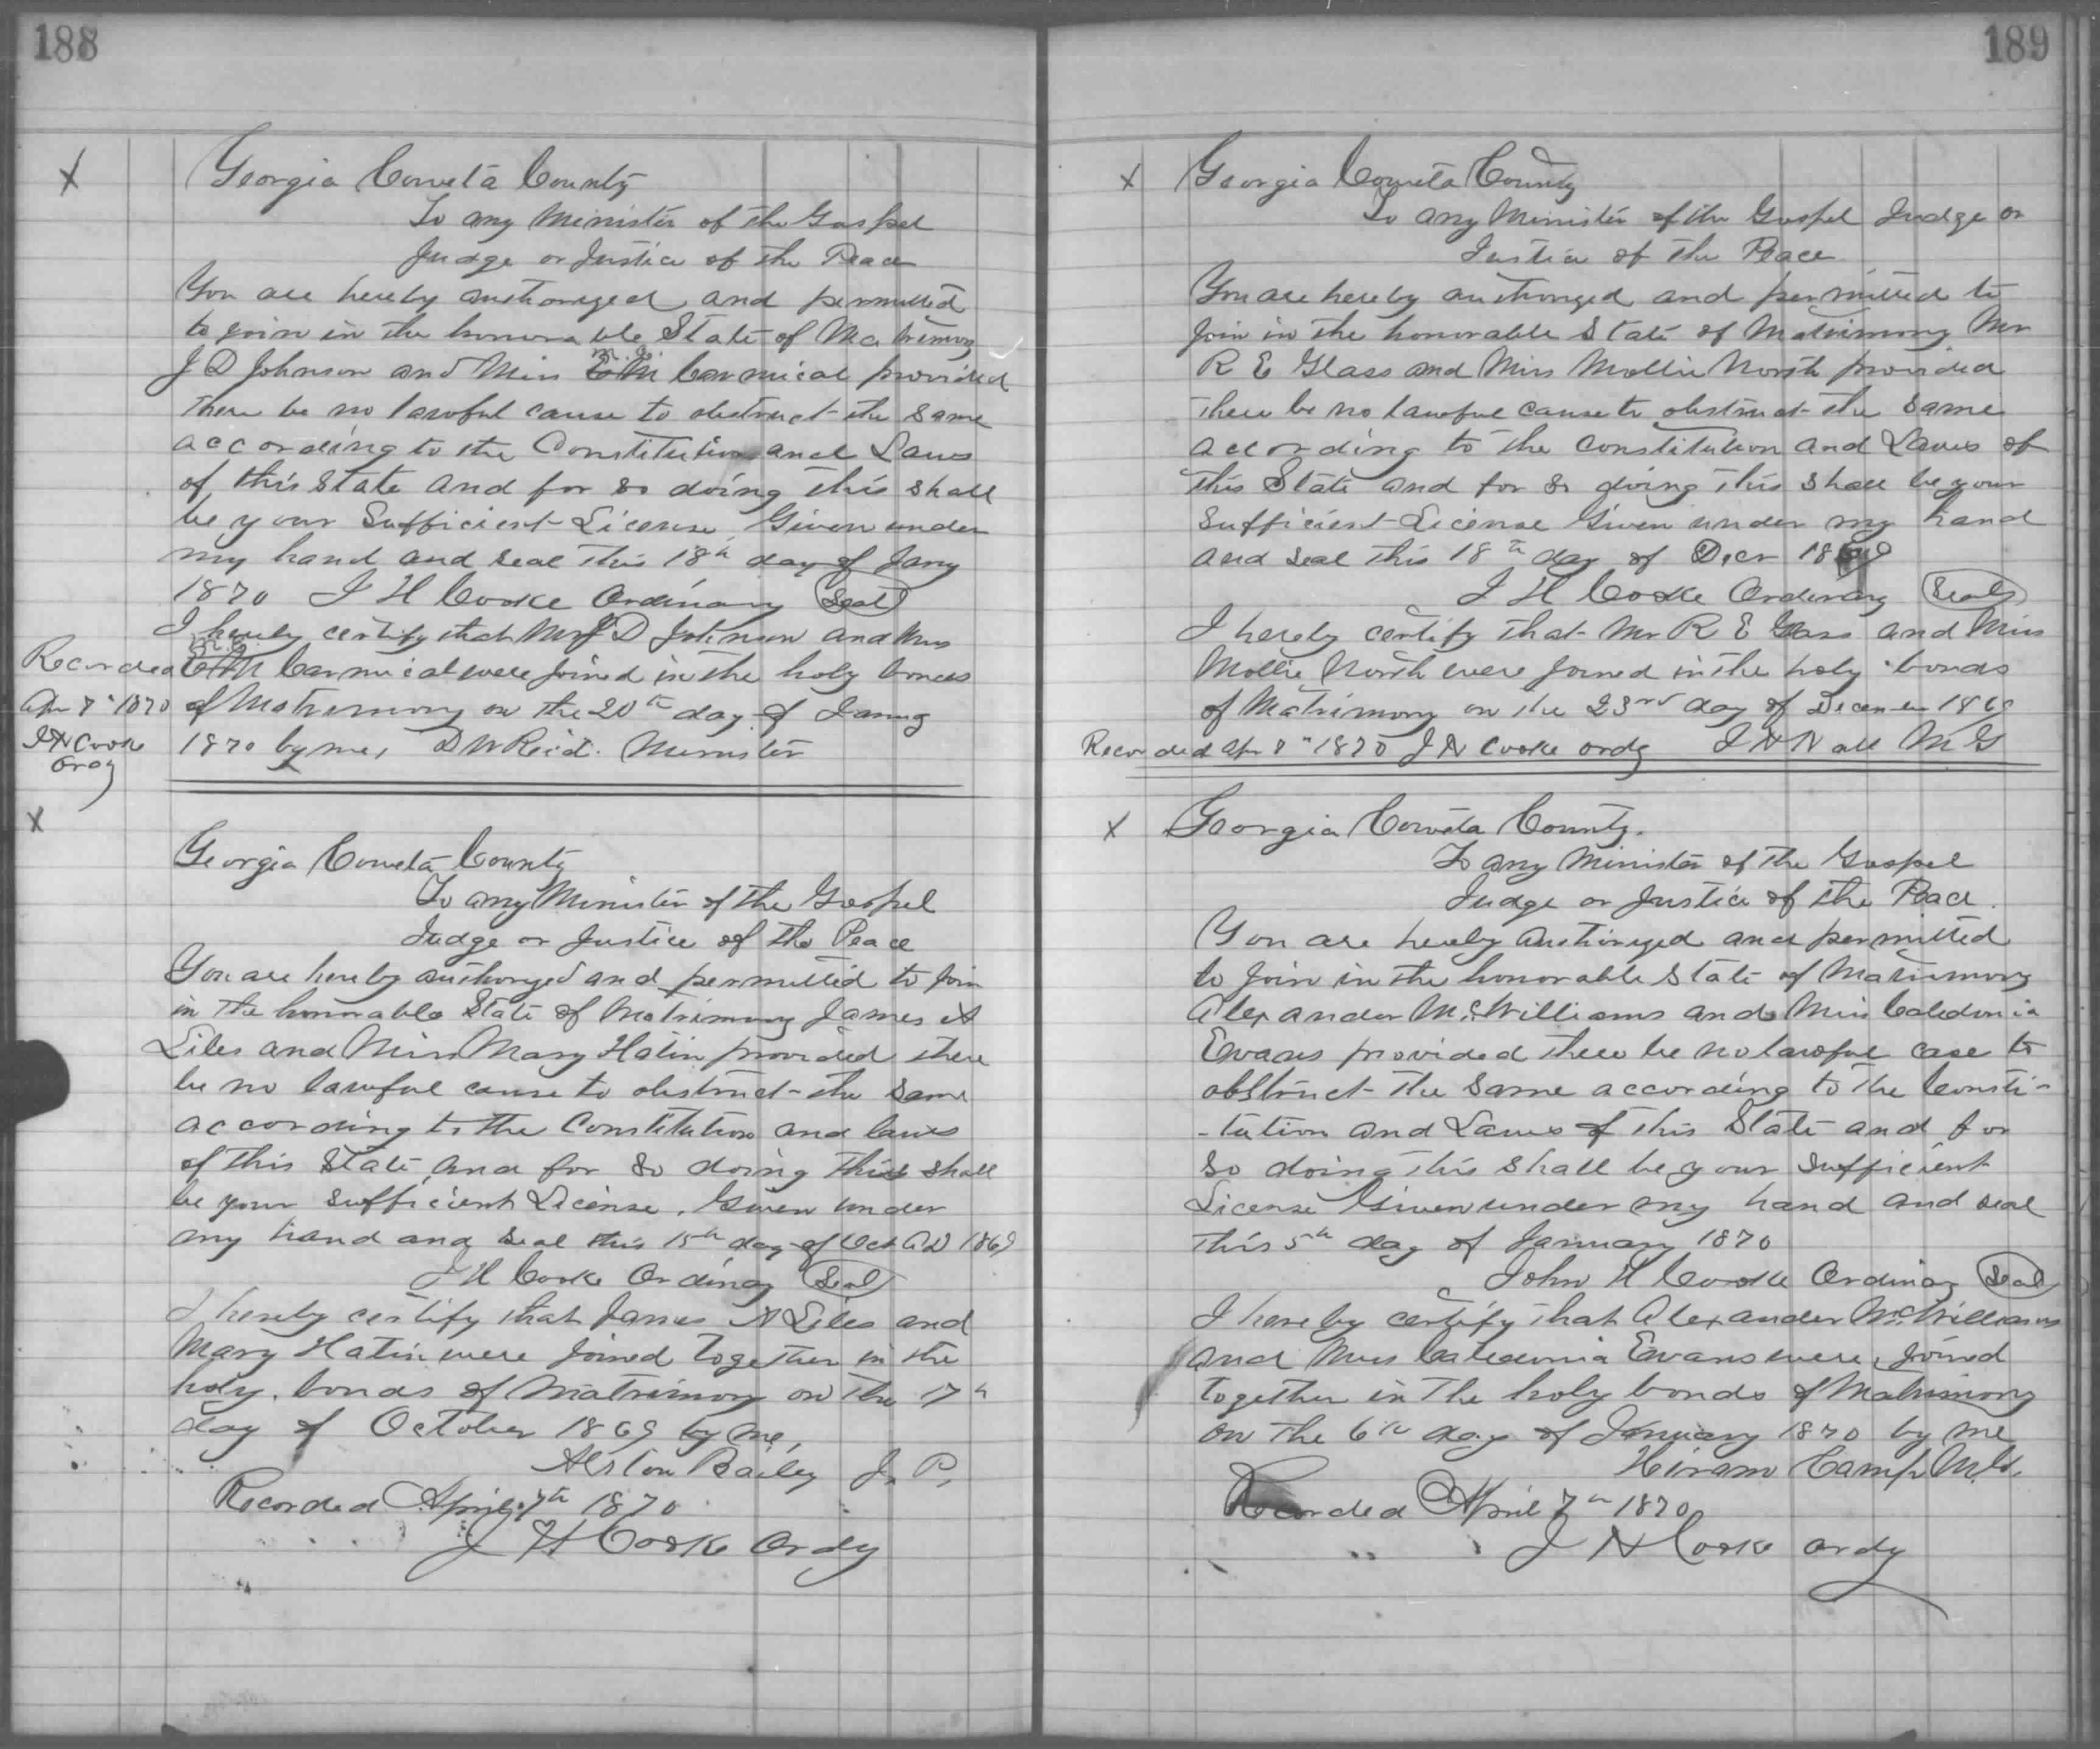 188
X
Georgia Coweta County
To any Minister of the Gospel
Judge or Justice of the Peace
You are hereby authorized and permitted
to join in the honorable State of Matrimony
M. C.
J D Johnson and Miss Carmical provided
there be no lawful cause to obstruct the same
according to the Constitution and Laws
of this State and for so doing this shall
be your Sufficient License Given under
my hand and seal this 18th day of Jany
1870 J H Cooke Ordinary Seal
I hereby certify that Mr J D Johnson and Miss
M. C.
Carmical were joined in the holy bonds
of Matrimony on the 20th day of Janug
1870 by me, D W Reid. Minister
Recorded
Apr 7" 1870
J H Cooke
Ordy
X
Georgia Coweta County
To any Minister of the Gospel
Judge or Justice of the Peace
You are hereby authorized and permitted to join
in the honorable State of Matrimony James A
Liles and Miss Mary Hatin provided there
be no lawful cause to obstruct the same
according to the Constitution and laws
of this State and for so doing this shall
be your sufficient License. Given under
my hand and seal this 15th day of Oct AD 1869
J H Cooke Ordinary Seal
I hereby certify that James A Liles and
Mary Hatin were joined together in the
holy bonds of matrimony on the 17th
day of October 1869 by me,
Alston Bailey J. P.
Recorded April 7th 1870
J H Cooke Ordy
189
X
Georgia Coweta County
To any Minister of the Gospel Judge or
Justice of the Peace
You are hereby authorized and permitted to
join in the honorable State of Matrimony Mr
R E Glass and Miss Mollie North provided
there be no lawful cause to obstruct the same
according to the constitution and Laws of
this State and for so doing this shall be your
sufficient License Given under my hand
and seal this 18th day of Decr 1869
J H Cooke Ordinary Seal
I hereby certify that Mr R E Glass and Miss
Mollie North were joined in the holy bonds
of Matrimony on the 23rd day of December 1869
Recorded Apr 8" 1870 J H Cooke ordy J H Nall M G
X
Georgia Coweta County.
To any Minister of the Gospel
Judge or Justice of the Peace.
You are hereby authorized and permitted
to join in the honorable State of Matrimony
Alexander McWilliams and Miss Caledonia
Evans provided there be no lawful case to
obstruct the same according to the Consti-
-tution and Laws of this State and for
so doing this shall be your sufficient
License Given under my hand and seal
this 5th day of January 1870
John H Cooke Ordinary Seal
I hereby certify that Alexander McWilliams
and Miss Caledonia Evans were joined
together in the holy bonds of Matrimony
on the 6th day of January 1870 by me
Hiram Camp M.G.
Recorded April 7th 1870
J H Cooke ordy